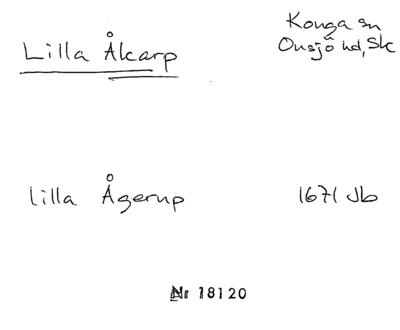 Lilla Åkarp
Konga sn
Onsjö hd, Sk
lilla Ågerup
1671 Jb
Nr 18120